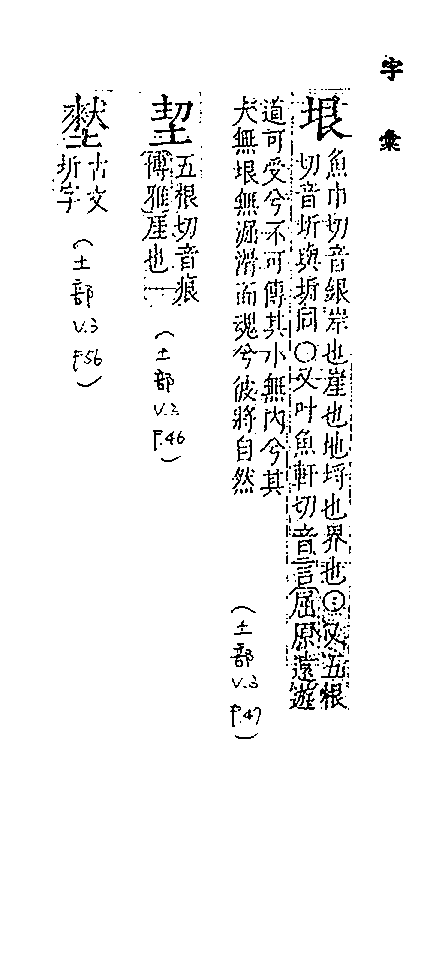 字彙
垠 魚巾切音銀岸也崖也地垺也界也○又五根
切音圻與圻同○又叶魚軒切音言屈原遠遊
道可受兮不可傳其小無內兮其
大無垠無淈滑而魂兮彼將自然
(土部 V.3 P.47)
五根切音痕
博雅崖也一
(土部 V.3 P.46)
古文
圻字
(土部 V.3 P.56)